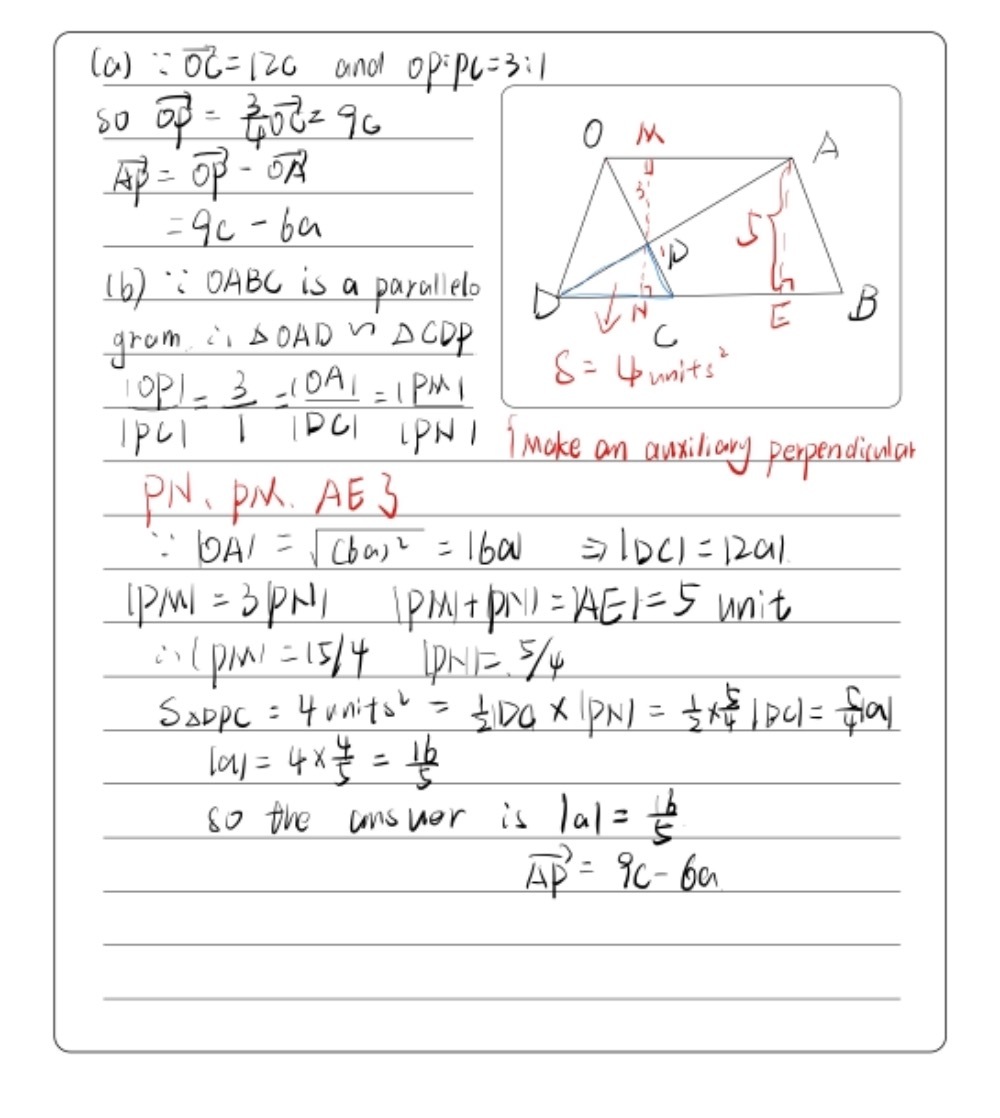 (a) ∵ OC→ = 12c and OP:PC=3:1
so OP→ = 3/4 OC→ = 9c
AP→ = OP→ - OA→
= 9c - 6a
(b) ∵ OABC is a parallelo
gram ∴ △OAD ∽ △CDP
|OP|/|PC| = 3/1 = |OA|/|DC| = |PM|/|PN|
O M A
3
5
P
D N C E B
S = 4 units²
{Make an auxiliary perpendicular
PN、PM、AE}
∵ |OA| = √(6a)² = |6a| ⇒ |DC| = |2a|
|PM| = 3|PN| |PM|+|PN| = |AE| = 5 unit
∴ |PM| = 15/4 |PN| = 5/4
S△DPC = 4 units² = 1/2|DC| × |PN| = 1/2 × 5/4 |DC| = 5/4|a|
|a| = 4 × 4/5 = 16/5
so the answer is |a| = 16/5
AP→ = 9c - 6a